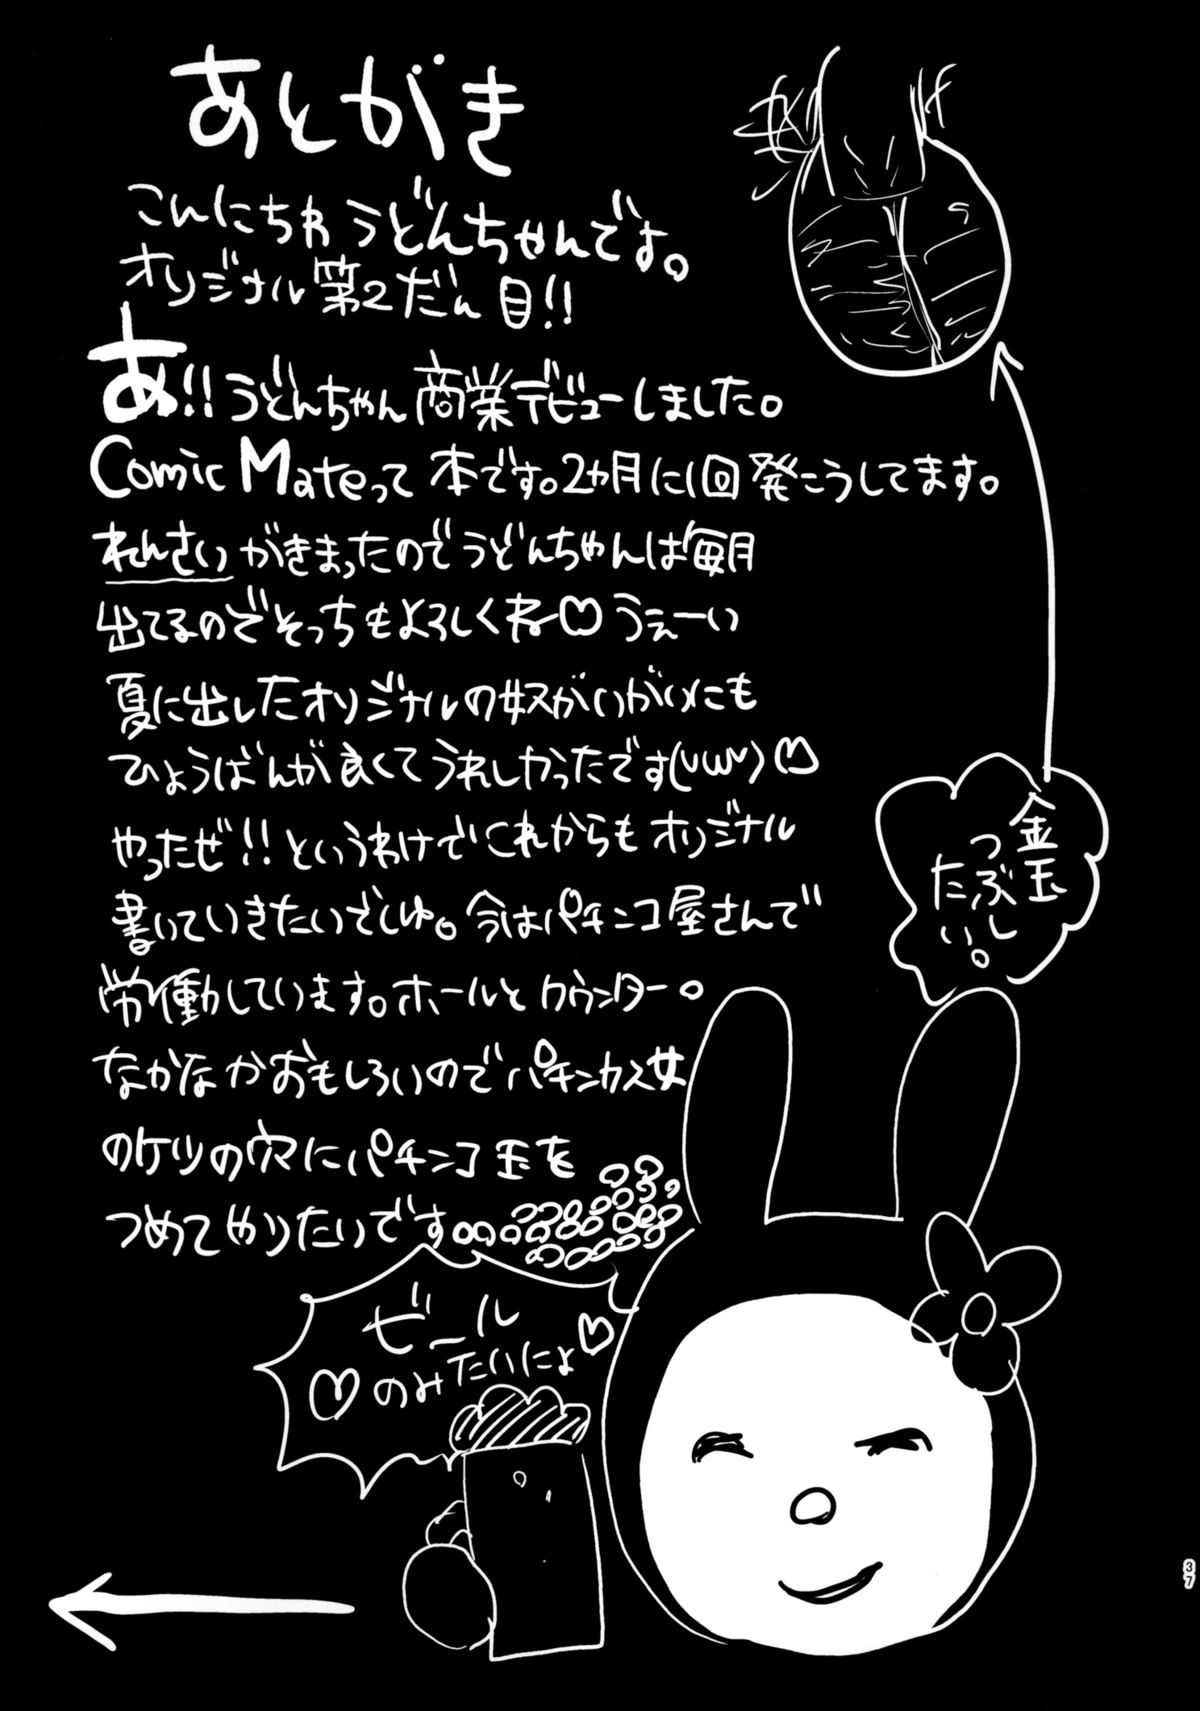 あとがき
こんにちわ うどんちゃんです。
オリジナル第2だん目!!
あ!! うどんちゃん商業デビューしました。
Comic Mateって本です。2ヵ月に1回発こうしてます。
れんさいがきまったのでうどんちゃんは毎月
出てるのでそっちもよろしくね♡うぇーい
夏に出したオリジナルの奴がいがいにも
ひょうばんが良くてうれしかったです(UωU)♡
やったぜ!!というわけでこれからもオリジナル
書いていきたいでしゅ。今はパチンコ屋さんで
労働しています。ホールとカウンター。
なかなかおもしろいのでパチンカス女
のケツの穴にパチンコ玉を
つめてやりたいです。
金玉
つぶし
たい。
ビール
♡のみたいにょ♡
37